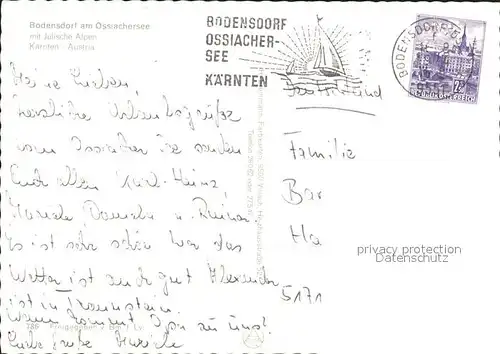 Bodensdorf am Ossiachersee
mit Julische Alpen
Kärnten - Austria
BODENSDORF
OSSIACHER-
SEE
KÄRNTEN
BODENSDORF
9551
REPUBLIK ÖSTERREICH
Meine Lieben,
herzliche Urlaubsgrüße
vom Ossiacher See senden
Euch allen Karl-Heinz,
Mariele, Daniela u. Rainer.
Es ist sehr schön hier das
Wetter ist auch gut Alexander
ist in Traunstein.
Wann kommt Opa zu uns!
Liebe Grüße Mariele
Familie
Bar
Ha
5171
privacy protection
Datenschutz